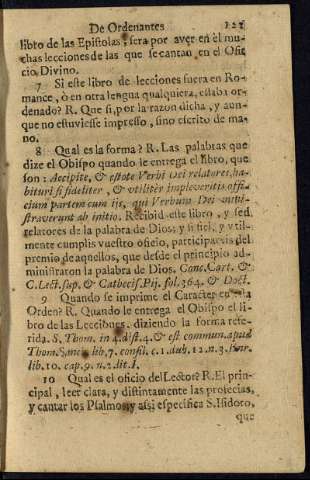 De Ordenantes 121
libro de las Epistolas, sera por aver en el mu-
chas lecciones de las que se cantan en el Ofi-
cio Divino.
7 Si este libro de lecciones fuera en Ro-
mance, ò en otra lengua qualquiera, estaba or-
denado? R. Que si, por la razon dicha, y aun-
que no estuviesse impresso, sino escrito de ma-
no.
8 Qual es la forma? R. Las palabras que
dize el Obispo quando le entrega el libro, que
son: Accipite, & estote Verbi Dei relatores, ha-
bituri si fideliter, & vtilitèr impleveritis offi-
cium partem cum ijs, qui Verbum Dei mini-
straverunt ab initio. Recibid este libro, y sed
relatores de la palabra de Dios: y si fiel, y vtil-
mente cumplis vuestro oficio, participareis del
premio de aquellos, que desde el principio ad-
ministraron la palabra de Dios. Conc. Cart. &
C. Lect. sup. & Cathecis. Pij. fol. 364. & Doct.
9 Quando se imprime el Caracter en
Orden? R. Quando le entrega el Obispo el li-
bro de las Lecciones, diziendo la forma refe-
rida. S. Thom. in 4. dist. 4. & est commun. apud
Thom. Sanc. lib. 7. consil. c. 1. dub. 12. n. 3.
lib. 10. cap. 9. n. 2. lit. I.
10 Qual es el oficio del Lector? R. El prin-
cipal, leer clara, y distintamente las profecias,
y cantar los Psalmos, y assi especifica S. Isidoro,
que